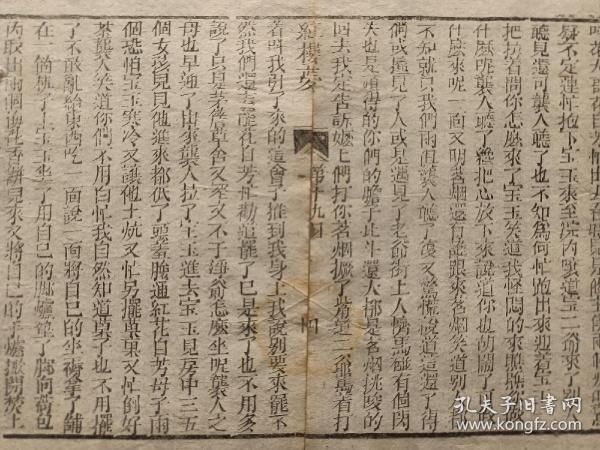 疑不定連忙抱下宝玉來至院内嚷道宝二爺來了別
聽見還可襲人聽了也不知為何忙跑出來迎着宝玉
把拉着問你怎麽來了宝玉笑道我怪悶的來瞧瞧你做
什麽呢襲人聽了纔把心放下來說道你也胡鬧了
什麽來呢一面又問茗烟還有誰跟來茗烟笑道別
不知就只我們兩個襲人聽了復又驚慌說道這還了得
們或撞見了人或是遇見了老爺街上人擠馬碰有個閃
失也是頑得的你們的膽子比斗還大都是茗烟挑唆的
回去我定告訴嬤上們打你茗烟撅了嘴道二爺罵着打
紅樓夢 第十九囘 四
着叫我引了來的這會子推到我身上我說別要來罷不
然我們還去罷花自芳忙勸道罷了已是來了也不用多
說了只是茅簷草舍又窄又不干淨爺怎麽坐呢襲人之
母也早迎了出來襲人拉了宝玉進去宝玉見房中三五
個女孩兒見他進來都低了頭羞臉通紅花自芳母子兩
個恐怕宝玉寒冷又讓他上炕又忙另擺菓桌又忙倒好
茶襲人笑道你們不用白忙我自然知道菓子也不用擺
了不敢亂給東西吃一面說一面將自己的坐褥拿了鋪
在一個杌子上宝玉坐了用自己的脚爐墊了脚向荷包
内取出兩個梅花香餅兒來又將自己的手爐掀開焚上
孔夫子旧书网
www.kongfz.com